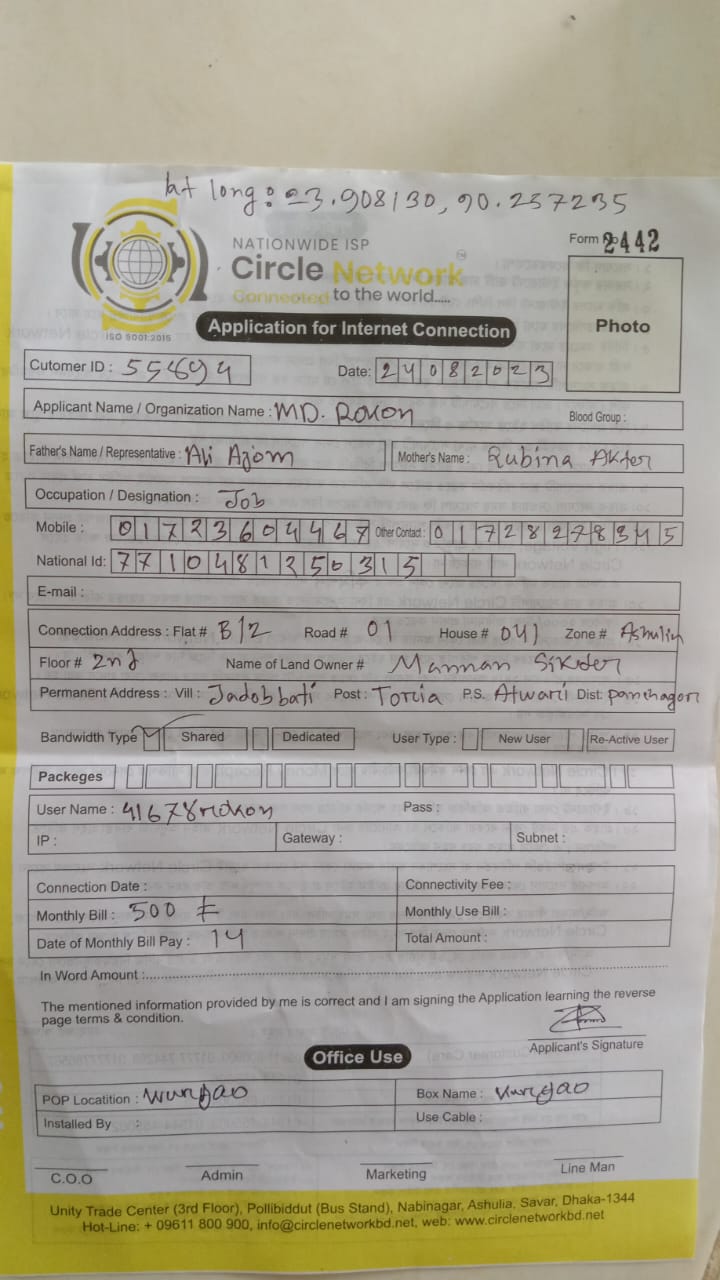 lat long: 23.908130, 90.257235
Form 2442
NATIONWIDE ISP
Circle Network
Connected to the world.....
ISO 9001:2015
Application for Internet Connection
Photo
Cutomer ID : Date: 24082023
Applicant Name / Organization Name : MD. Rokon Blood Group :
Father's Name / Representative : Ali Ajom Mother's Name : Rubina Akter
Occupation / Designation : Job
Mobile : 01723604467 Other Contact : 01728278345
National Id: 7710481250315
E-mail :
Connection Address : Flat # B/2 Road # 01 House # 041 Zone # Ashulia
Floor # 2nd Name of Land Owner # Mannan Sikder
Permanent Address : Vill : Jadobbati Post : Toria P.S. Atwari Dist: panchagor
Bandwidth Type Shared Dedicated User Type : New User Re-Active User
Packeges
User Name : 41678rokon Pass :
IP : Gateway : Subnet :
Connection Date : Connectivity Fee :
Monthly Bill : 500 Monthly Use Bill :
Date of Monthly Bill Pay : 14 Total Amount :
In Word Amount :
The mentioned information provided by me is correct and I am signing the Application learning the reverse
page terms & condition.
Applicant's Signature
Office Use
POP Locatition : Box Name :
Installed By : Use Cable :
C.O.O Admin Marketing Line Man
Unity Trade Center (3rd Floor), Pollibiddut (Bus Stand), Nabinagar, Ashulia, Savar, Dhaka-1344
Hot-Line: + 09611 800 900, info@circlenetworkbd.net, web: www.circlenetworkbd.net